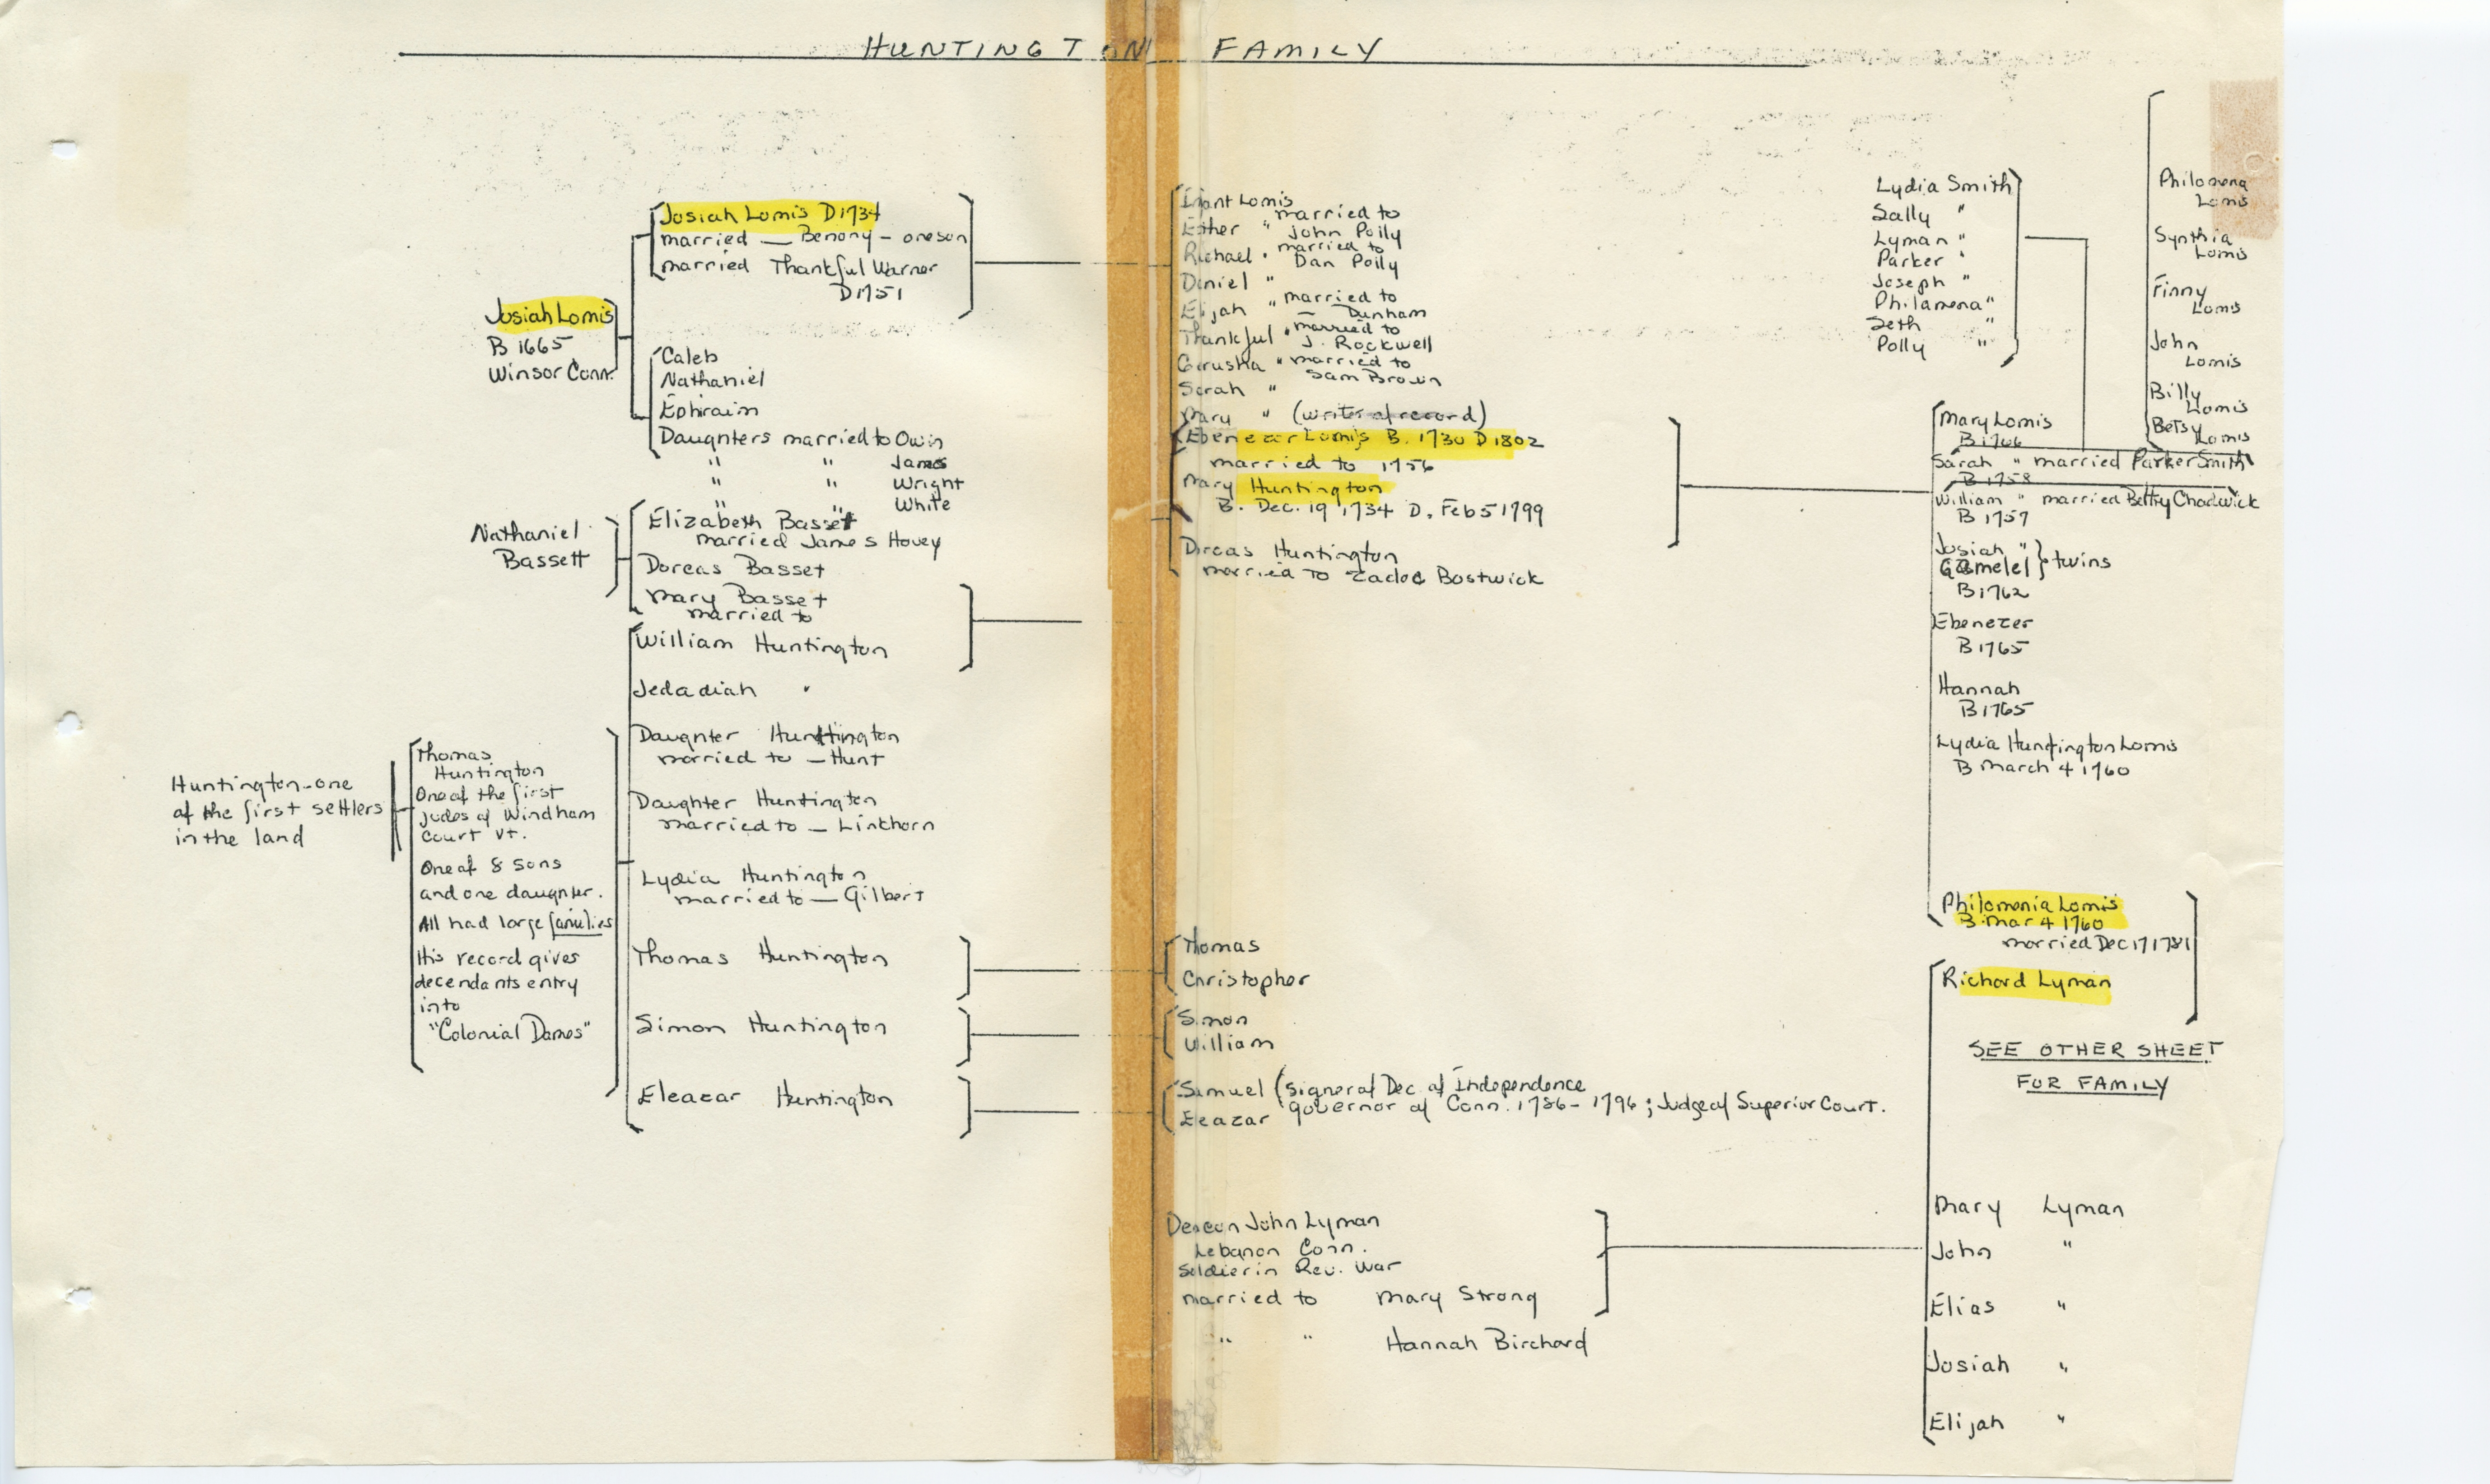 HUNTINGTON FAMILY
Josiah Lomis D 1734
married — Benony - one son
married Thankful Warner
D 1751
Josiah Lomis
B 1665
Winsor Conn.
Caleb
Nathaniel
Ephraim
Daughters married to Owin
" " James
" " Wright
" " White
Nathaniel
Bassett
Elizabeth Basset
married James Hovey
Dorcas Basset
Mary Basset
married to
William Huntington
Jedadiah "
Daughter Huntington
married to — Hunt
Daughter Huntington
married to — Linkhorn
Lydia Huntington
married to — Gilbert
Thomas Huntington
Simon Huntington
Eleazar Huntington
Huntington - one
of the first settlers
in the land
Thomas
Huntington
One of the first
judes of Windham
Court Vt.
One of 8 sons
and one daughter.
All had large families
His record gives
decendants entry
into
"Colonial Dames"
Infant Lomis
Esther " married to
John Polly
Richael " married to
Dan Polly
Daniel "
Elijah " married to
— Dunham
Thankful " married to
J. Rockwell
Gerusha " married to
Sam Brown
Sarah "
Mary " (writer of record)
Ebenezar Lomis B. 1730 D 1802
married to 1756
Mary Huntington
B. Dec. 19 1734 D. Feb 5 1799
Dorcas Huntington
married to Zadoc Bostwick
Thomas
Christopher
Simon
William
Samuel (signer of Dec of Independence
governor of Conn. 1786 - 1796; Judge of Superior Court.
Eleazar
Deacon John Lyman
Lebanon Conn.
Soldier in Rev. War
married to Mary Strong
" " Hannah Birchard
Lydia Smith
Sally "
Lyman "
Parker "
Joseph "
Philamena "
Seth "
Polly "
Philomena
Lomis
Synthia
Lomis
Finny
Lomis
John
Lomis
Billy
Lomis
Betsy
Lomis
Mary Lomis
B 1766
Sarah " married Parker Smith
B 1758
William " married Betty Chadwick
B 1757
Josiah "
Gamelel } twins
B 1762
Ebenezer
B 1765
Hannah
B 1765
Lydia Huntington Lomis
B March 4 1760
Philomenia Lomis
B. Mar 4 1760
married Dec 17 1781
Richard Lyman
SEE OTHER SHEET
FOR FAMILY
Mary Lyman
John "
Elias "
Josiah "
Elijah "